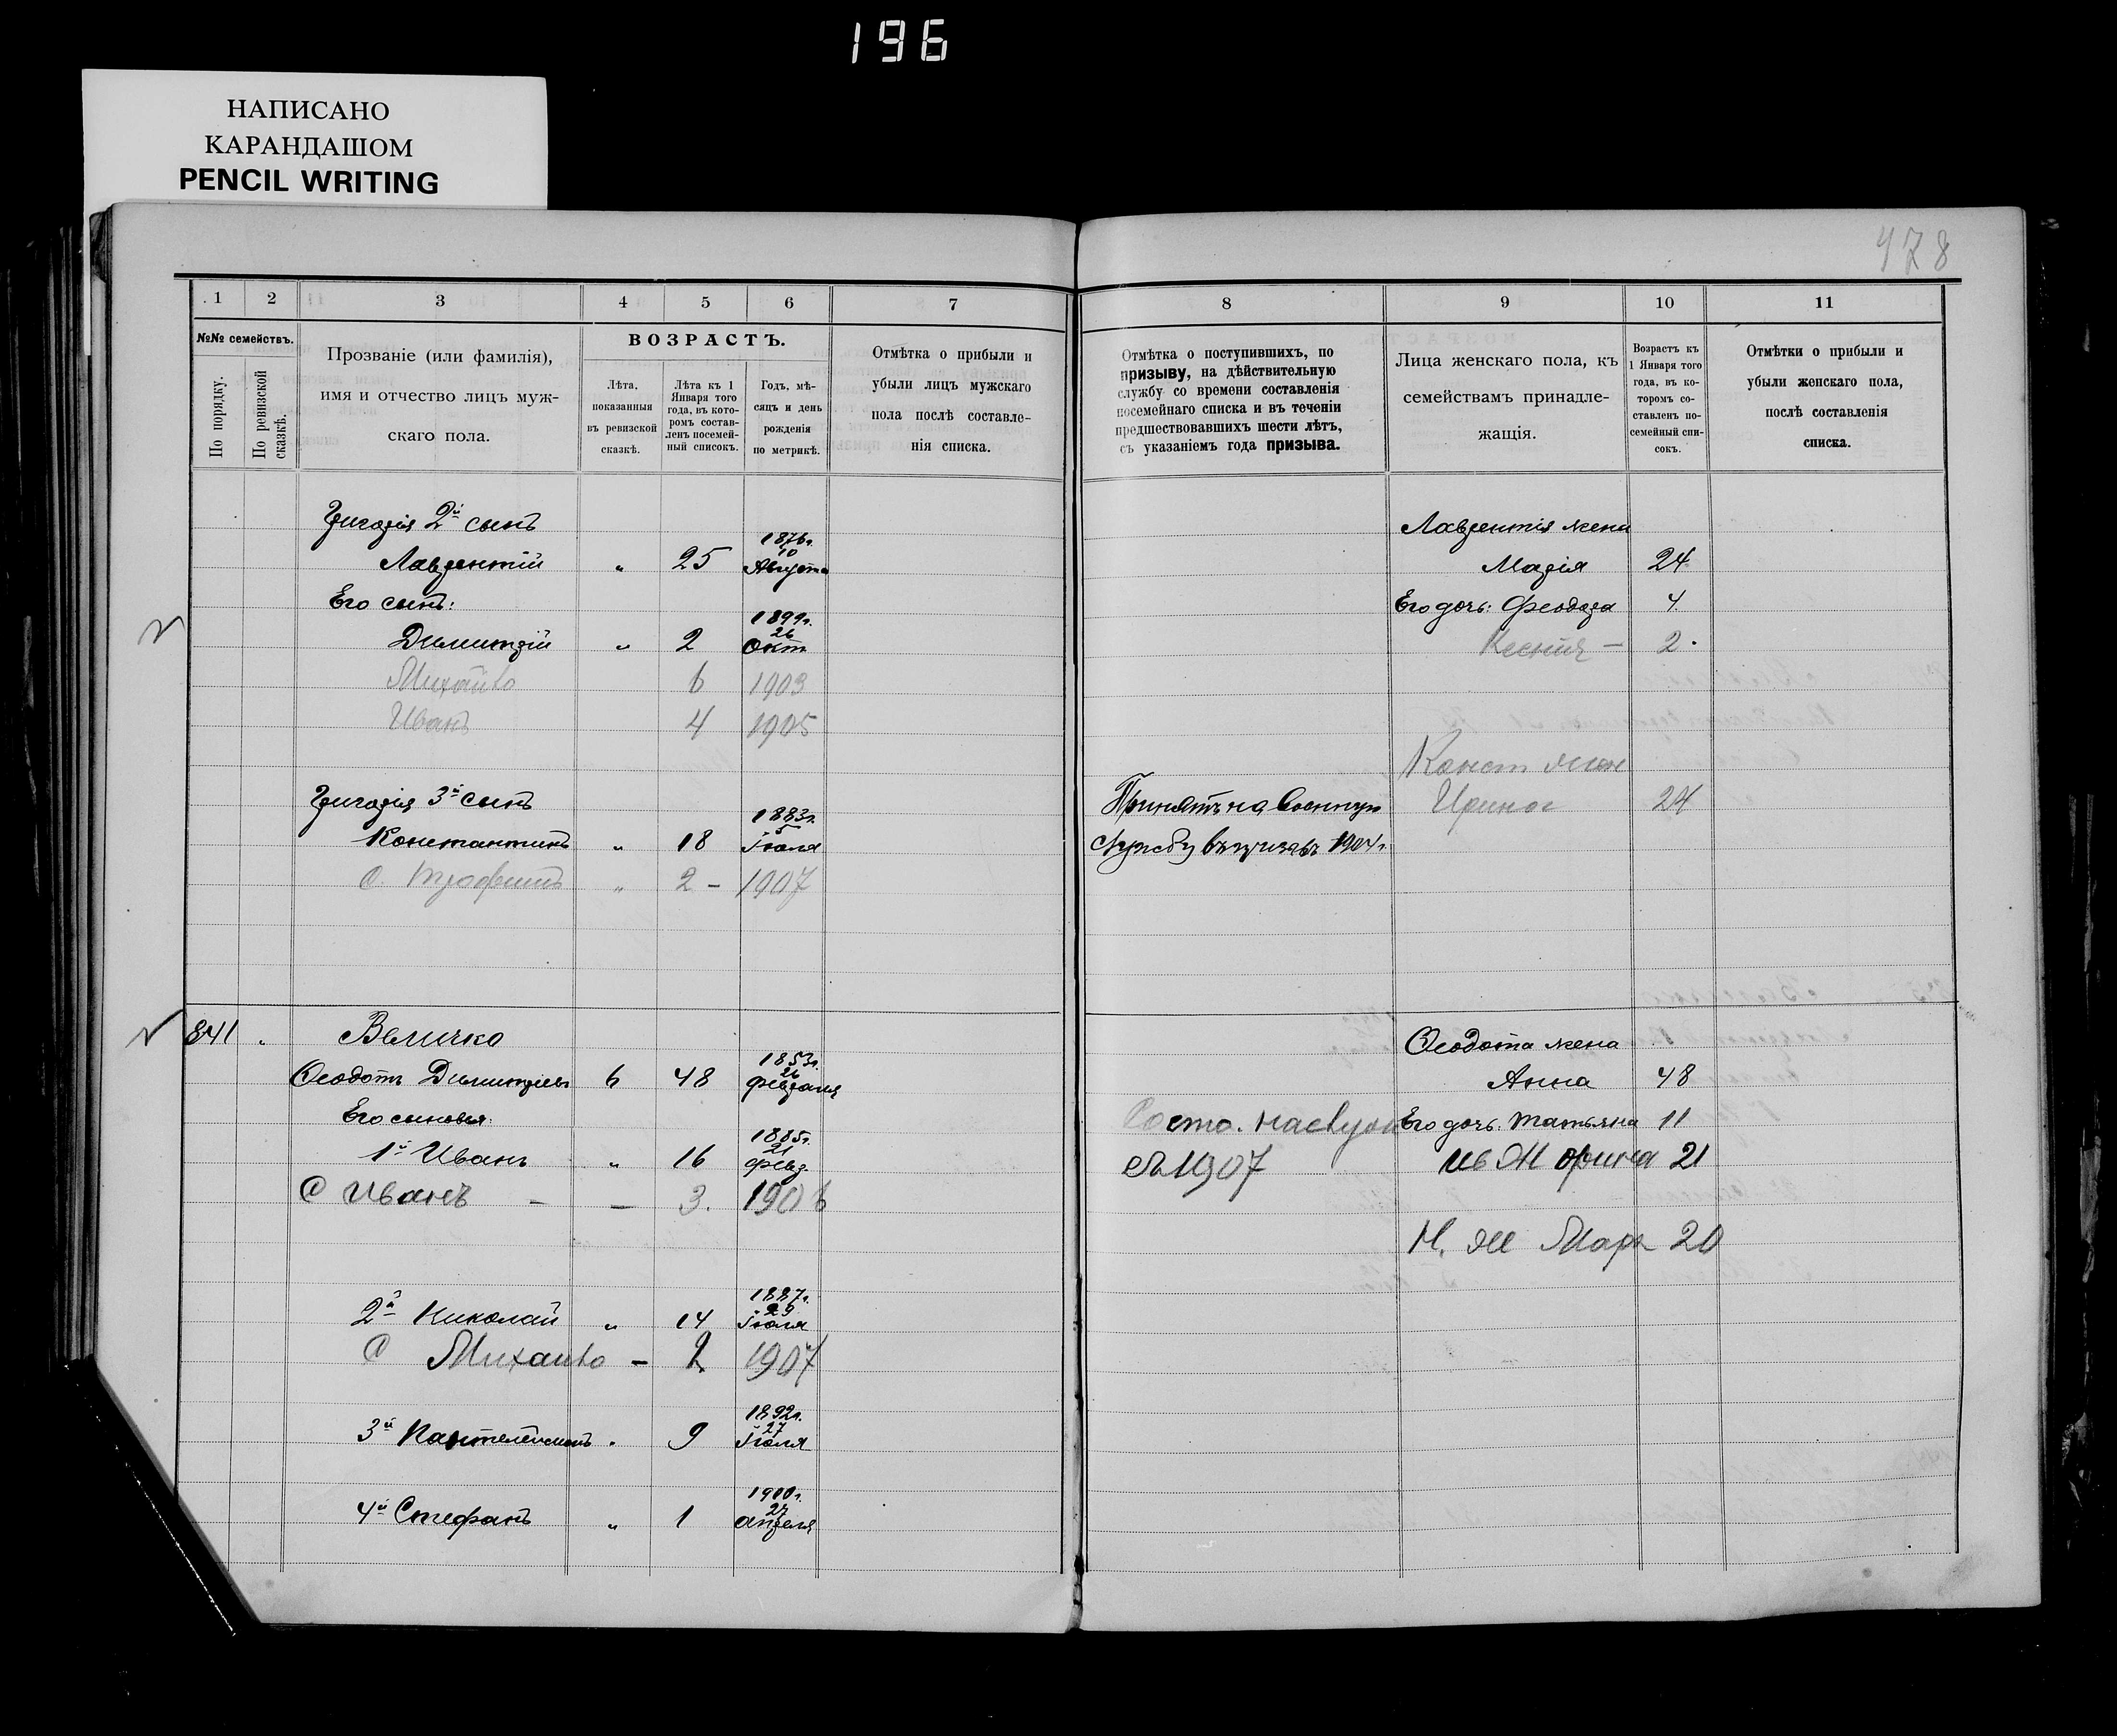 196
НАПИСАНО
КАРАНДАШОМ
PENCIL WRITING
478
1 2 3 4 5 6 7
№№ семействъ.
По порядку.
По ревизской сказкѣ.
Прозваніе (или фамилія),
имя и отчество лицъ муж-
скаго пола.
ВОЗРАСТЪ.
Лѣта,
показанныя
въ ревизской
сказкѣ.
Лѣта къ 1
Января того
года, въ кото-
ромъ состав-
ленъ посемей-
ный списокъ.
Годъ, мѣ-
сяцъ и день
рожденія
по метрикѣ.
Отмѣтка о прибыли и
убыли лицъ мужскаго
пола послѣ составле-
нія списка.
Григорія 2й сынъ
1876г.
10
Лаврентій " 25 Августа
Его сынъ:
1899г.
26
Димитрій " 2 Окт
Михаилъ 6 1903
Иванъ 4 1905
Григорія 3й сынъ
1883г.
5
Константинъ " 18 Іюля
С. Трофимъ " 2 - 1907
841 " Величко
1853г.
26
Ѳеодотъ Димитріевъ 6 48 февраля
Его сыновья:
1885г.
21
1й Иванъ " 16 февр.
С Иванъ - - 3. 1906
1887г.
29
2й Николай " 14 Іюля
С Михаилъ - 2 1907
1892г.
27
3й Пантелеймонъ " 9 Іюля
1900г.
27
4й Стефанъ " 1 апреля
8 9 10 11
Отмѣтка о поступившихъ, по
призыву, на дѣйствительную
службу со времени составленія
посемейнаго списка и въ теченіи
предшествовавшихъ шести лѣтъ,
съ указаніемъ года призыва.
Лица женскаго пола, къ
семействамъ принадле-
жащія.
Возрастъ къ
1 Января того
года, въ ко-
торомъ со-
ставленъ по-
семейный спи-
сокъ.
Отмѣтки о прибыли и
убыли женскаго пола,
послѣ составленія
списка.
Лаврентія жена
Марія 24
Его дочь: Феодора 4
Ксенія - 2.
Конст жен
Принятъ на военную Ирина 24
службу въ призывъ 1904г.
Ѳеодота жена
Анна 48
Его дочь: Татьяна 11
съ 1907 Ив Ж Орина 21
Н. Ж Марія 20